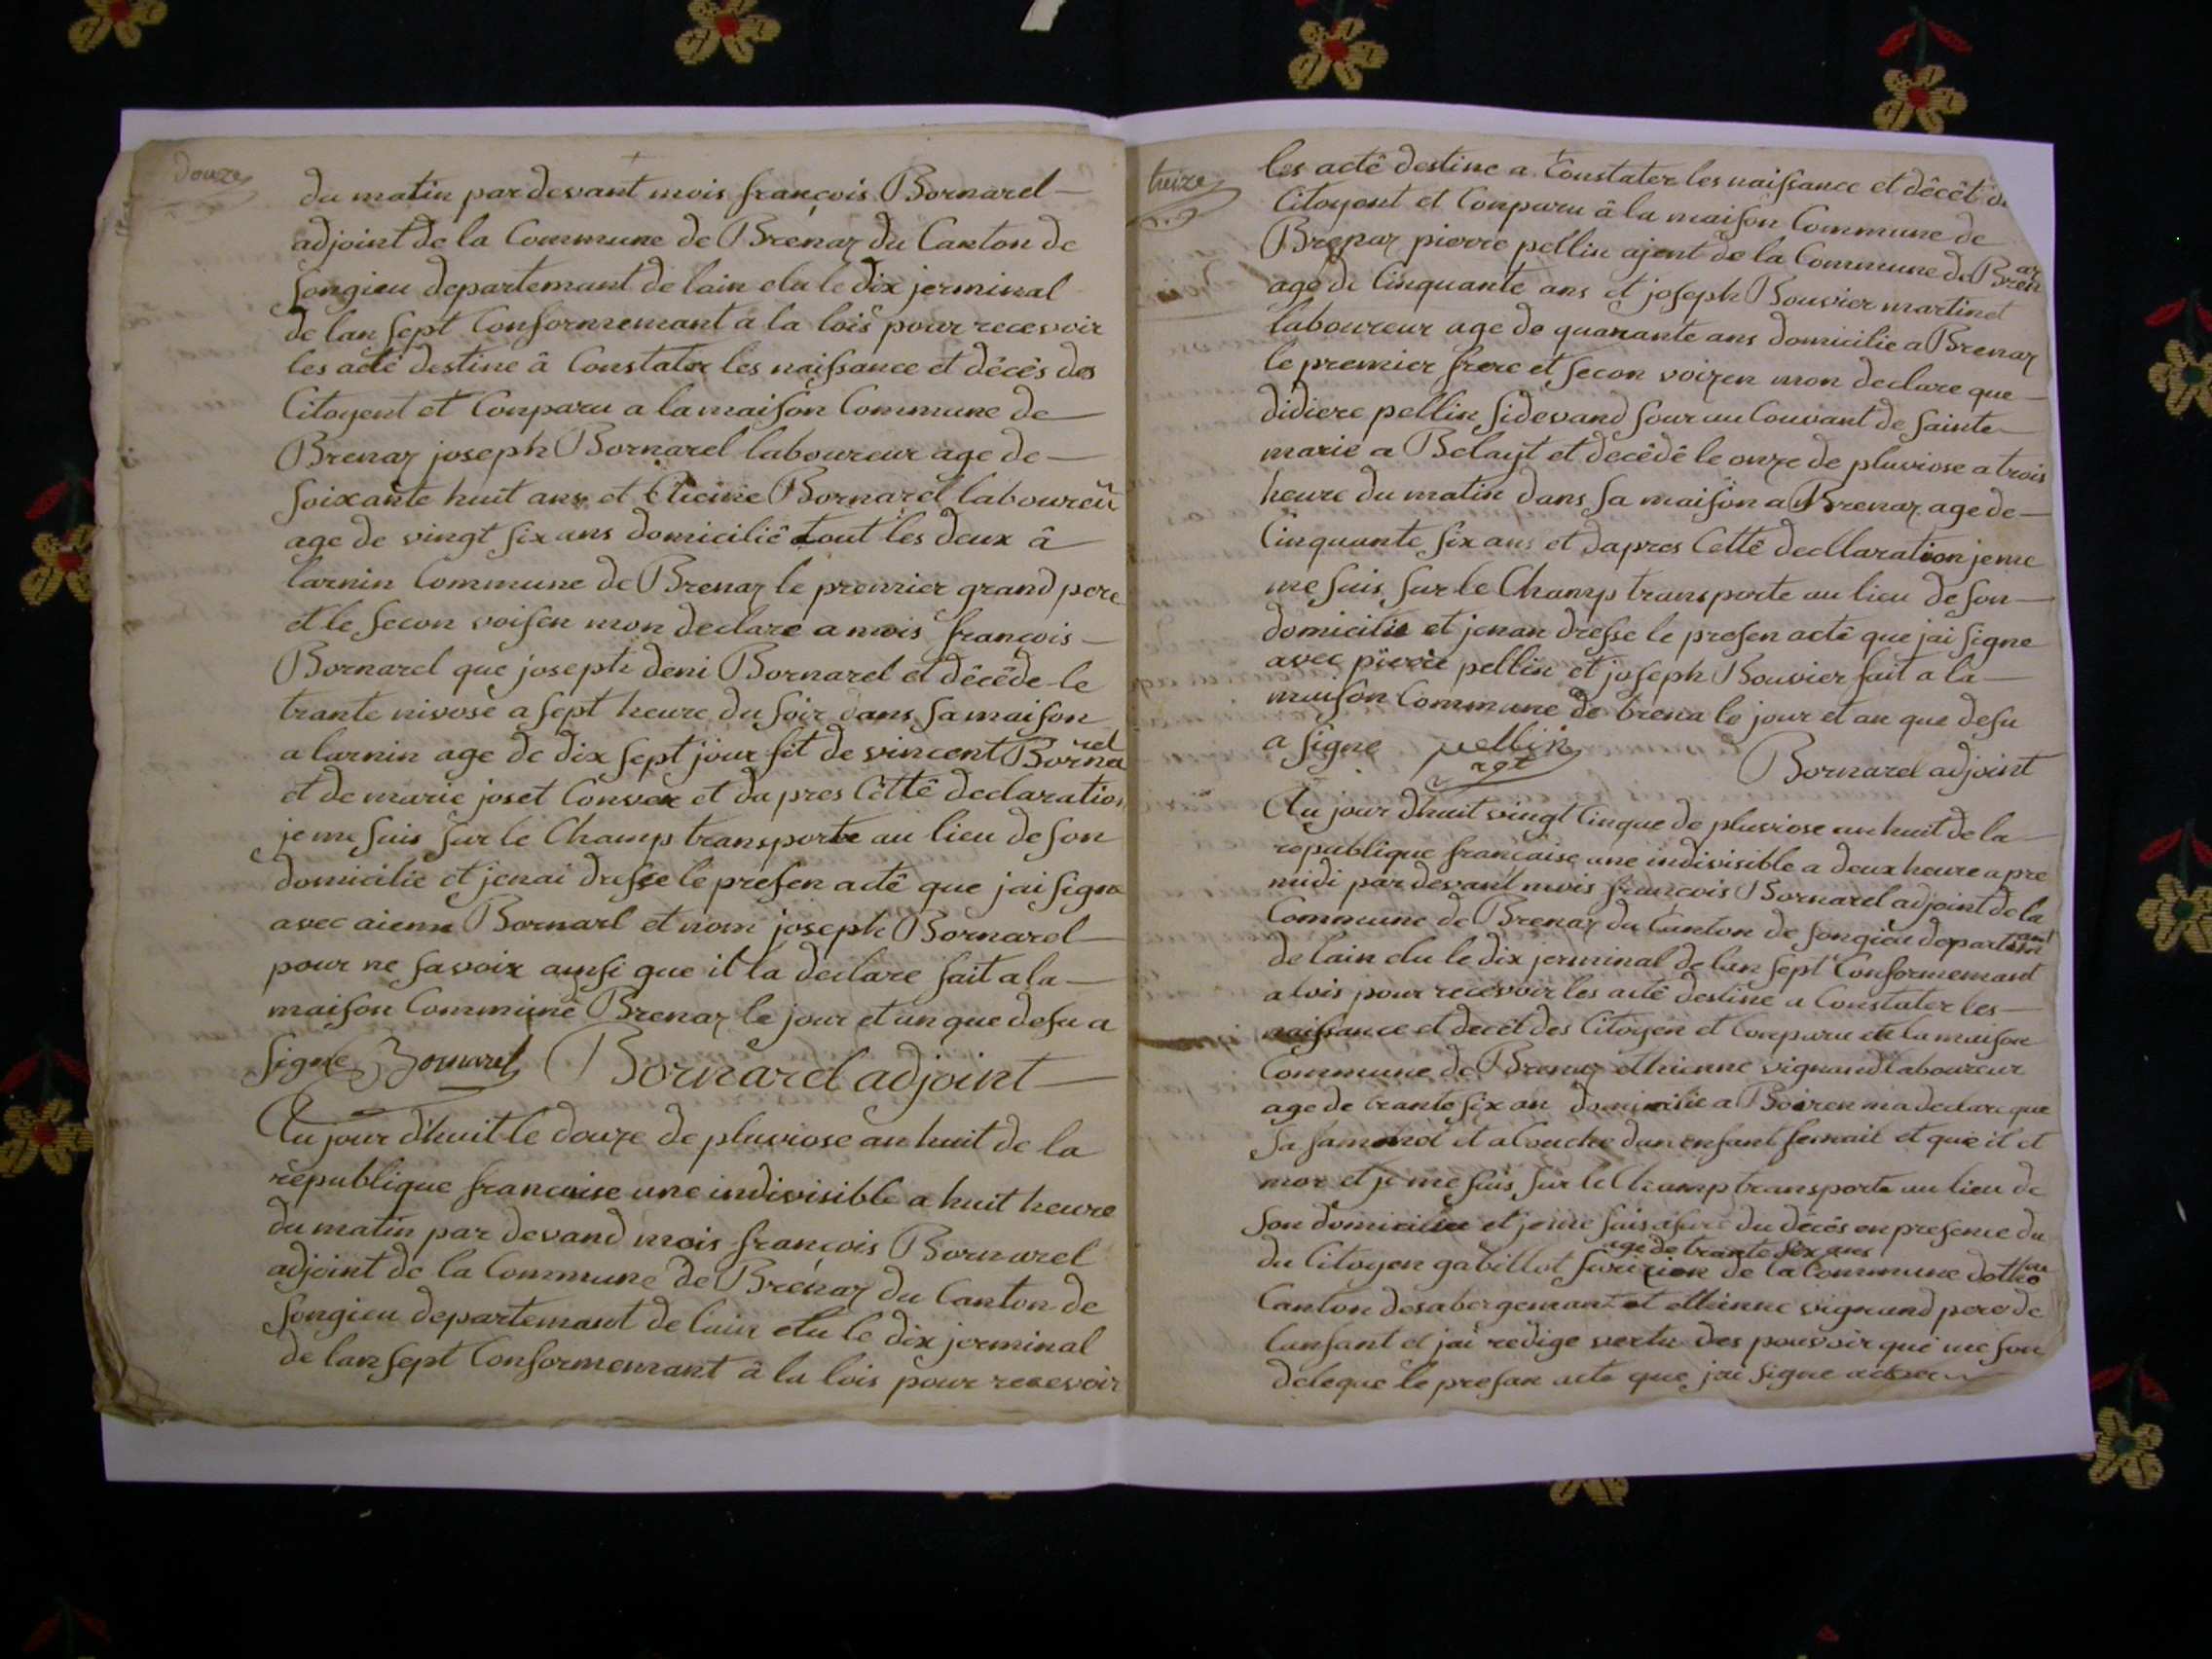 douze
du matin par devant mois françois Bornarel
adjoint de la Commune de Brenaz du Canton de
songieu departemant de lain elu le dix jerminal
de lan sept Conformemant a la lois pour recevoir
les actê destine â Constater les naissance et dêcês des
Citoyent et Conparu a la maison Commune de
Brenaz joseph Bornarel laboureur age de
soixante huit ans et Eticine Bornarel laboureur
age de vingt six ans domiciliê tout les deux â
larnin Commune de Brenaz le premier grand pere
et le secon voisen mon declare a mois françois
Bornarel que joseph deni Bornarel et dêcêde le
trante nivose a sept heure du soir dans sa maison
a larnin age de dix sept jour fit de vincent Bornarel
et de marie joset Conver et dapres Cêttê declaration
je me suis sur le Champ transporte au lieu de son
domicilie et jenai dresse le presen actê que jai signe
avec aienne Bornarl et nom joseph Bornarel
pour ne savoir aynsi que il la declare fait a la
maison Commune Brenaz le jour et an que desu a
signe Bornarel Bornarel adjoint
Au jour dhuit le douze de pluviose an huit de la
republique francaise une indivisible a huit heure
du matin par devand mois françois Bornarel
adjoint de la Commune de Brenaz du Canton de
songieu departemant de lain elu le dix jerminal
de lan sept Conformemant â la lois pour recevoir
treize
les actê destine a Constater les naissance et dêcêt
Citoyent et Conparu â la maison Commune de
Brenaz pierre pellin ajent de la Commune de Brenar
age de Cinquante ans et joseph Bouvier martinet
laboureur age de quarante ans domicilie a Brenaz
le premier frere et secon voizen mon declare que
didiere pellin sidevand sour au Couvant de sainte
marie a Belayt et decêdê le onze de pluviose a trois
heure du matin dans sa maison a Brenaz age de
Cinquante six ans et dapres Cettê decllaration je me
me suis sur le Champ transporte au lieu de son
domicilie et jenan dresse le presen actê que jai signe
avec pierre pellin et joseph Bouvier fait a la
maison Commune de brena le jour et an que desu
a signe pellin agt
Bornarel adjoint
Au jour dhuit vingt Cinque de pluviose an huit de la
republique francaise une indivisible a deux heure apre
midi par devant mois françois Bornarel adjoint de la
Commune de Brenaz du Canton de songieu departemant
de lain elu le dix jerminal de lan sept Conformemant
a lois pour recevoir les actê destine a Constater les
naissance et decêt des Citoyen et Conparu a la maison
Commune de Brenaz ethienne vignand laboureur
age de trante six an domicilie a Boiren ma declare que
sa et a Couche dun enfant femail et que il et
mor et je me suis sur le Champ transporte au lieu de
son domicilie et je me suis asure du dêcês en presence du
du Citoyen gabillot age de trante six ans de la Commune
Canton desabergemant et ethienne vignand pere de
lanfant et jai redige vertu des pouvoir qui me son
deleque le presan acte que jai signe